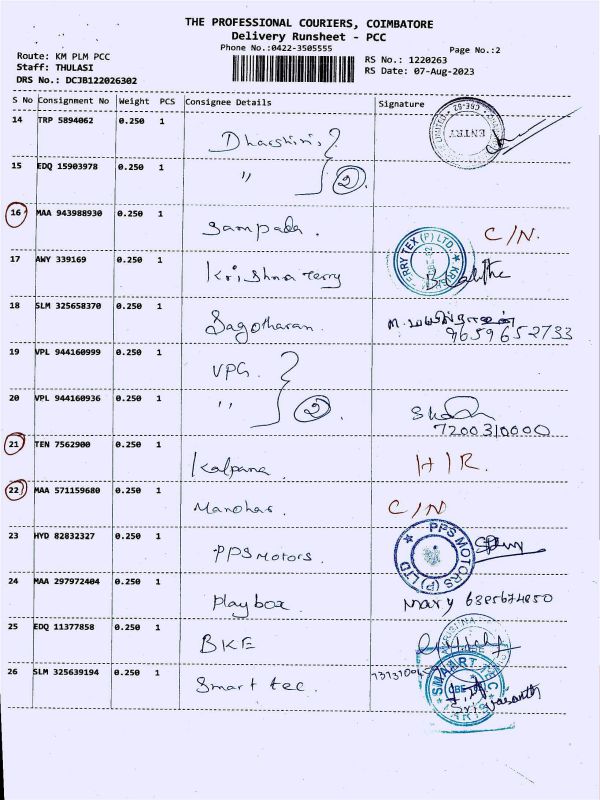 THE PROFESSIONAL COURIERS, COIMBATORE
Delivery Runsheet - PCC
Phone No.:0422-3505555
Page No.:2
Route: KM PLM PCC
Staff: THULASI
DRS No.: DCJB122026302
RS No.: 1220263
RS Date: 07-Aug-2023
S No Consignment No Weight PCS Consignee Details Signature
14 TRP 5894062 0.250 1 Dharshini
ENTRY
15 EDQ 15903978 0.250 1 " 2
16 MAA 943988930 0.250 1 Sampada. C/N.
17 AWY 339169 0.250 1 Krishna Terry
TERRY TEX (P) LTD.
18 SLM 325658370 0.250 1 Sagotharan.
9659652733
19 VPL 944160999 0.250 1 VPG.
20 VPL 944160936 0.250 1 " 2
7200310000
21 TEN 7562900 0.250 1 Kalpana H/R.
22 MAA 571159680 0.250 1 Manohar. C/N
23 HYD 82832327 0.250 1 PPS Motors.
PPS MOTORS (P) LTD
24 MAA 297972404 0.250 1 Play box. Mary 6385674850
25 EDQ 11377858 0.250 1 BKE
26 SLM 325639194 0.250 1 Smart tec.